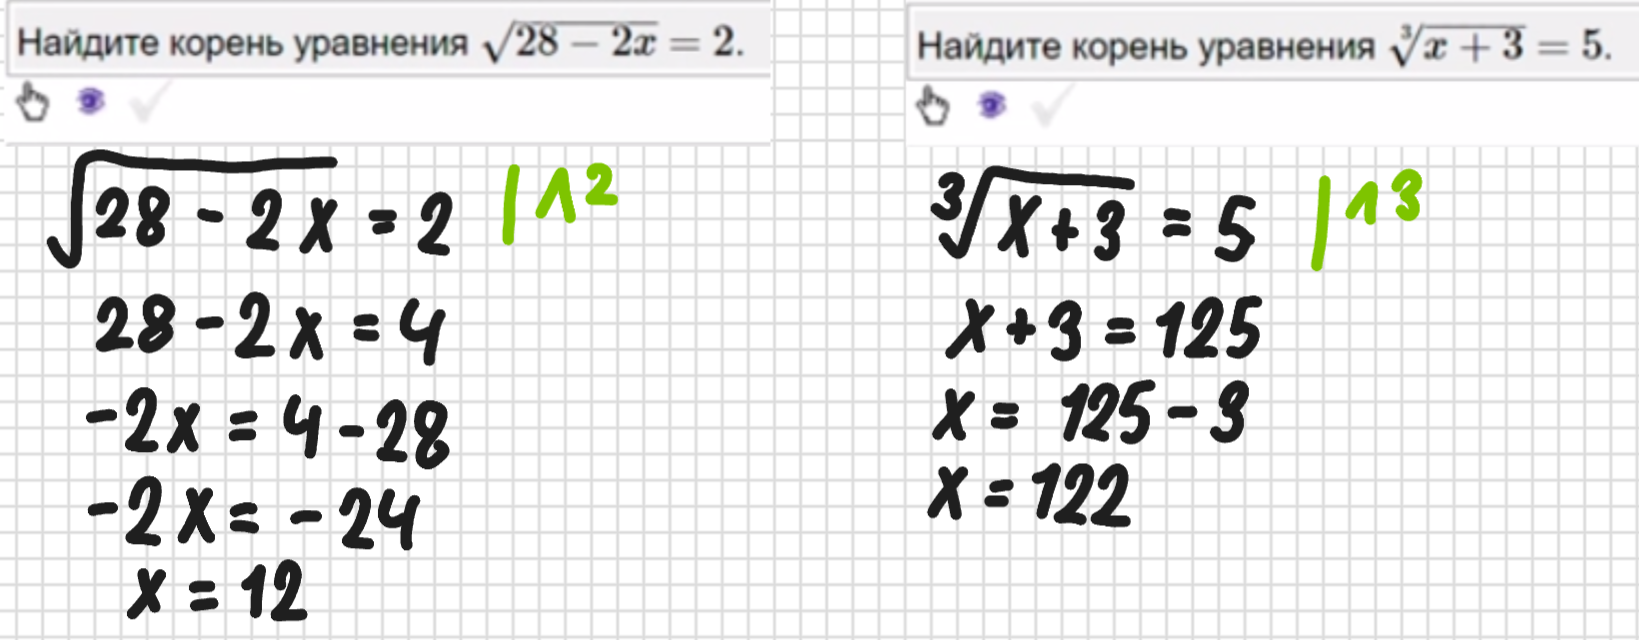 Найдите корень уравнения √28 − 2x = 2.
√28 - 2x = 2 | ^2
28 - 2x = 4
-2x = 4 - 28
-2x = -24
x = 12
Найдите корень уравнения ∛x + 3 = 5.
∛x + 3 = 5 | ^3
x + 3 = 125
x = 125 - 3
x = 122